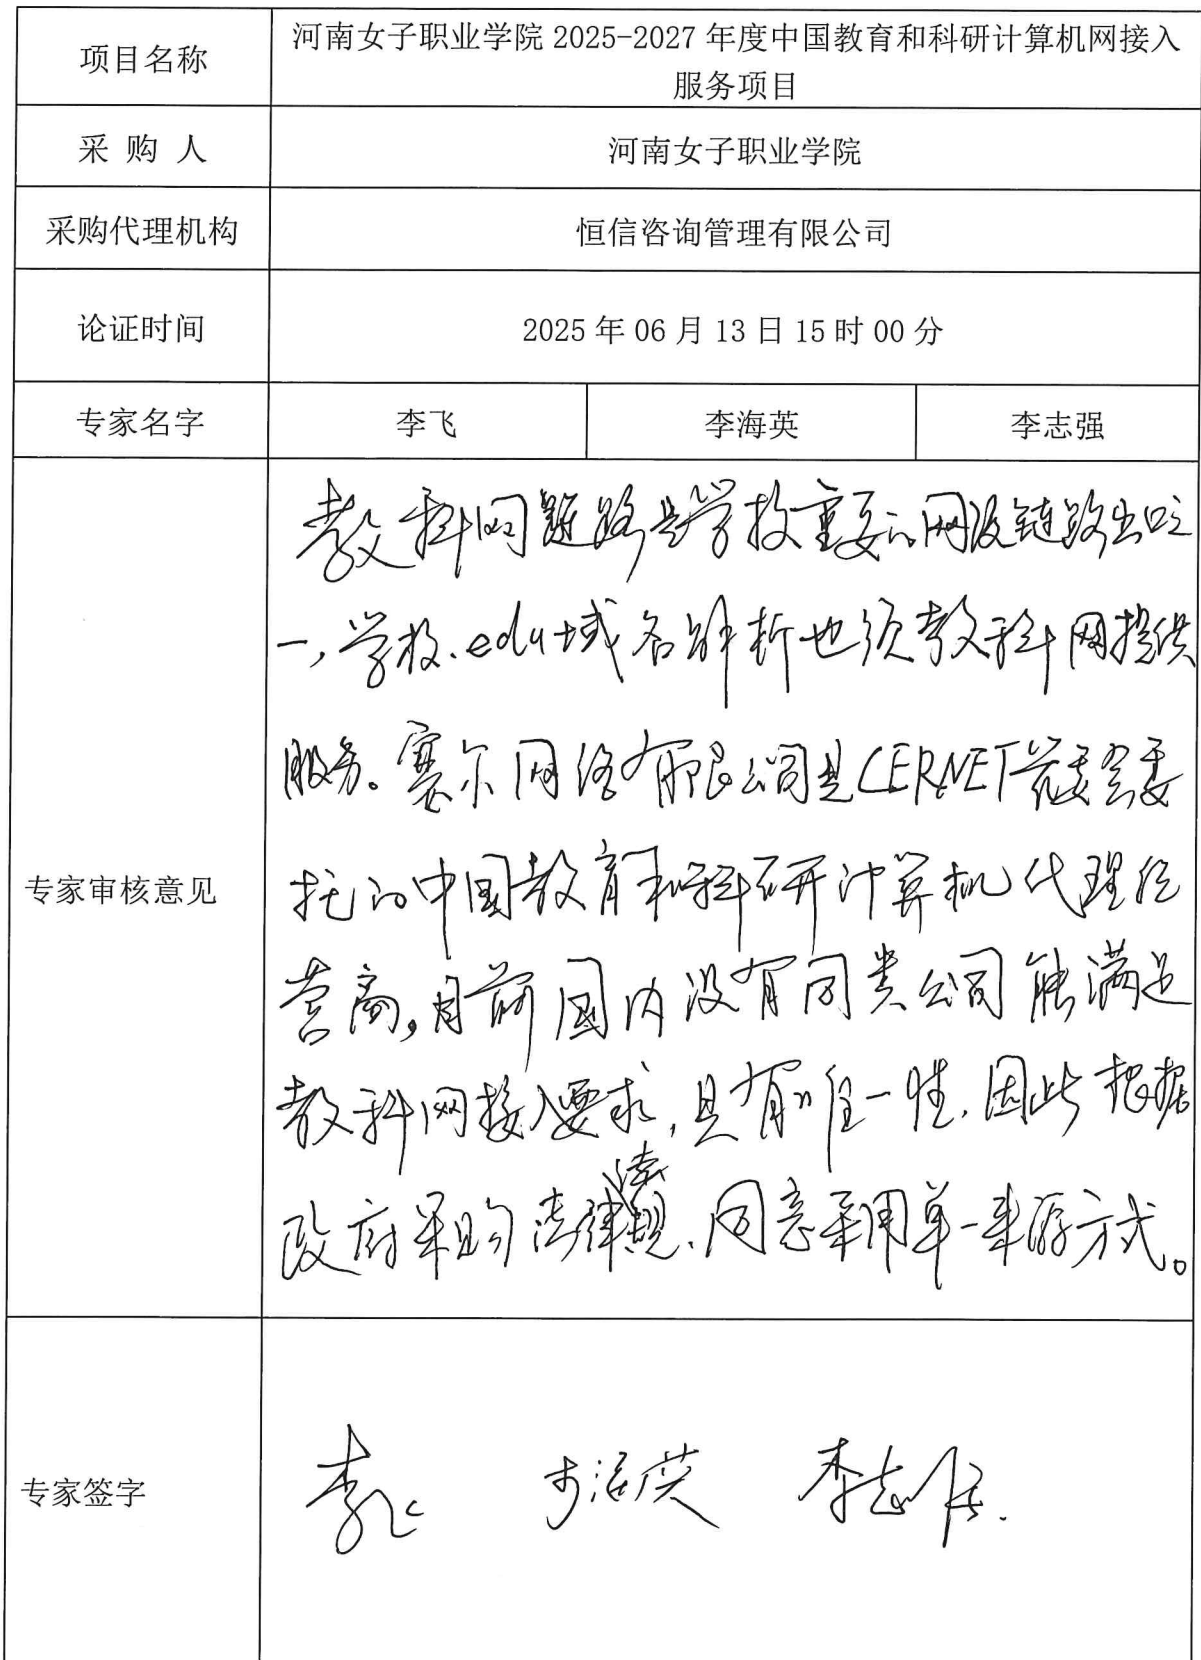 项目名称
河南女子职业学院 2025-2027 年度中国教育和科研计算机网接入
服务项目
采 购 人
河南女子职业学院
采购代理机构
恒信咨询管理有限公司
论证时间
2025 年 06 月 13 日 15 时 00 分
专家名字
李飞
李海英
李志强
专家审核意见
教科网链路是学校重要的网段链路出口之
一,学校.edu域名解析也须教科网提供
服务。赛尔网络有限公司是CERNET管委会委
托的中国教育和科研计算机代理经
营商,目前国内没有同类公司能满足
教科网接入要求,具有唯一性.因此根据
政府采购法律法规.同意采用单一来源方式。
专家签字
李飞
李海英
李志强